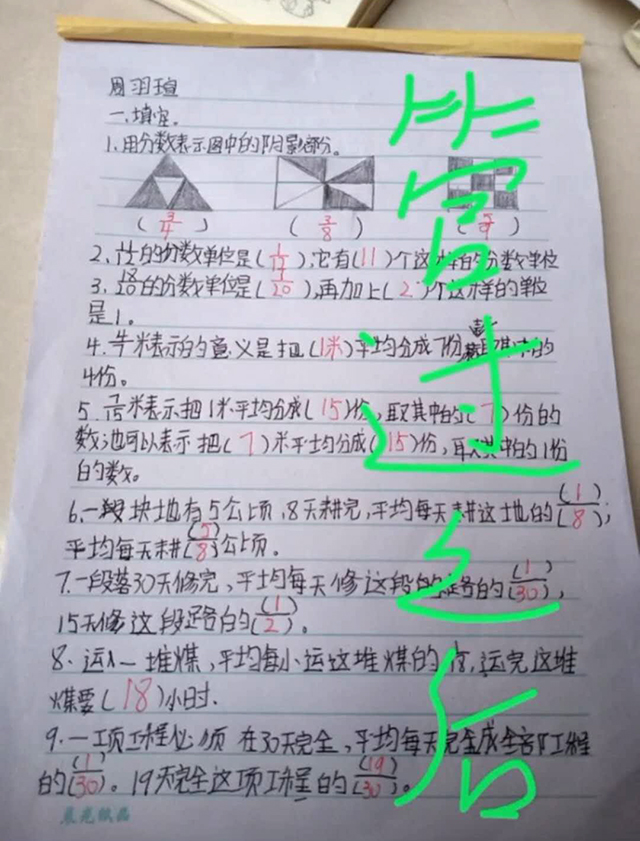 周羽瑄
一、填空。
1、用分数表示图中的阴影部分。
(3/4) (3/8) (5/9)
2、的分数单位是(1/12),它有(11)个这样的分数单位
3、18/20的分数单位是(1/20),再加上(2)个这样的单位
是1。
4、米表示的意义是把(1米)平均分成7份,取其中的
4份。
5、7/15米表示把1米平均分成(15)份,取其中的(7)份的
数,也可以表示把(7)米平均分成(15)份,取其中的1份
的数。
6、一块地有5公顷,8天耕完,平均每天耕这地的(1)/(8);
平均每天耕(5)/(8)公顷。
7、一段路30天修完,平均每天修这段的路的(1)/(30),
15天修这段路的(1)/(2)。
8、运一堆煤,平均每小运这堆煤的,运完这堆
煤要(18)小时.
9、一项工程必须在30天完全,平均每天完全成全部工程
的(1)/(30)。19天完全这项工程的(19)/(30)。
晨光纸品
尝过之后